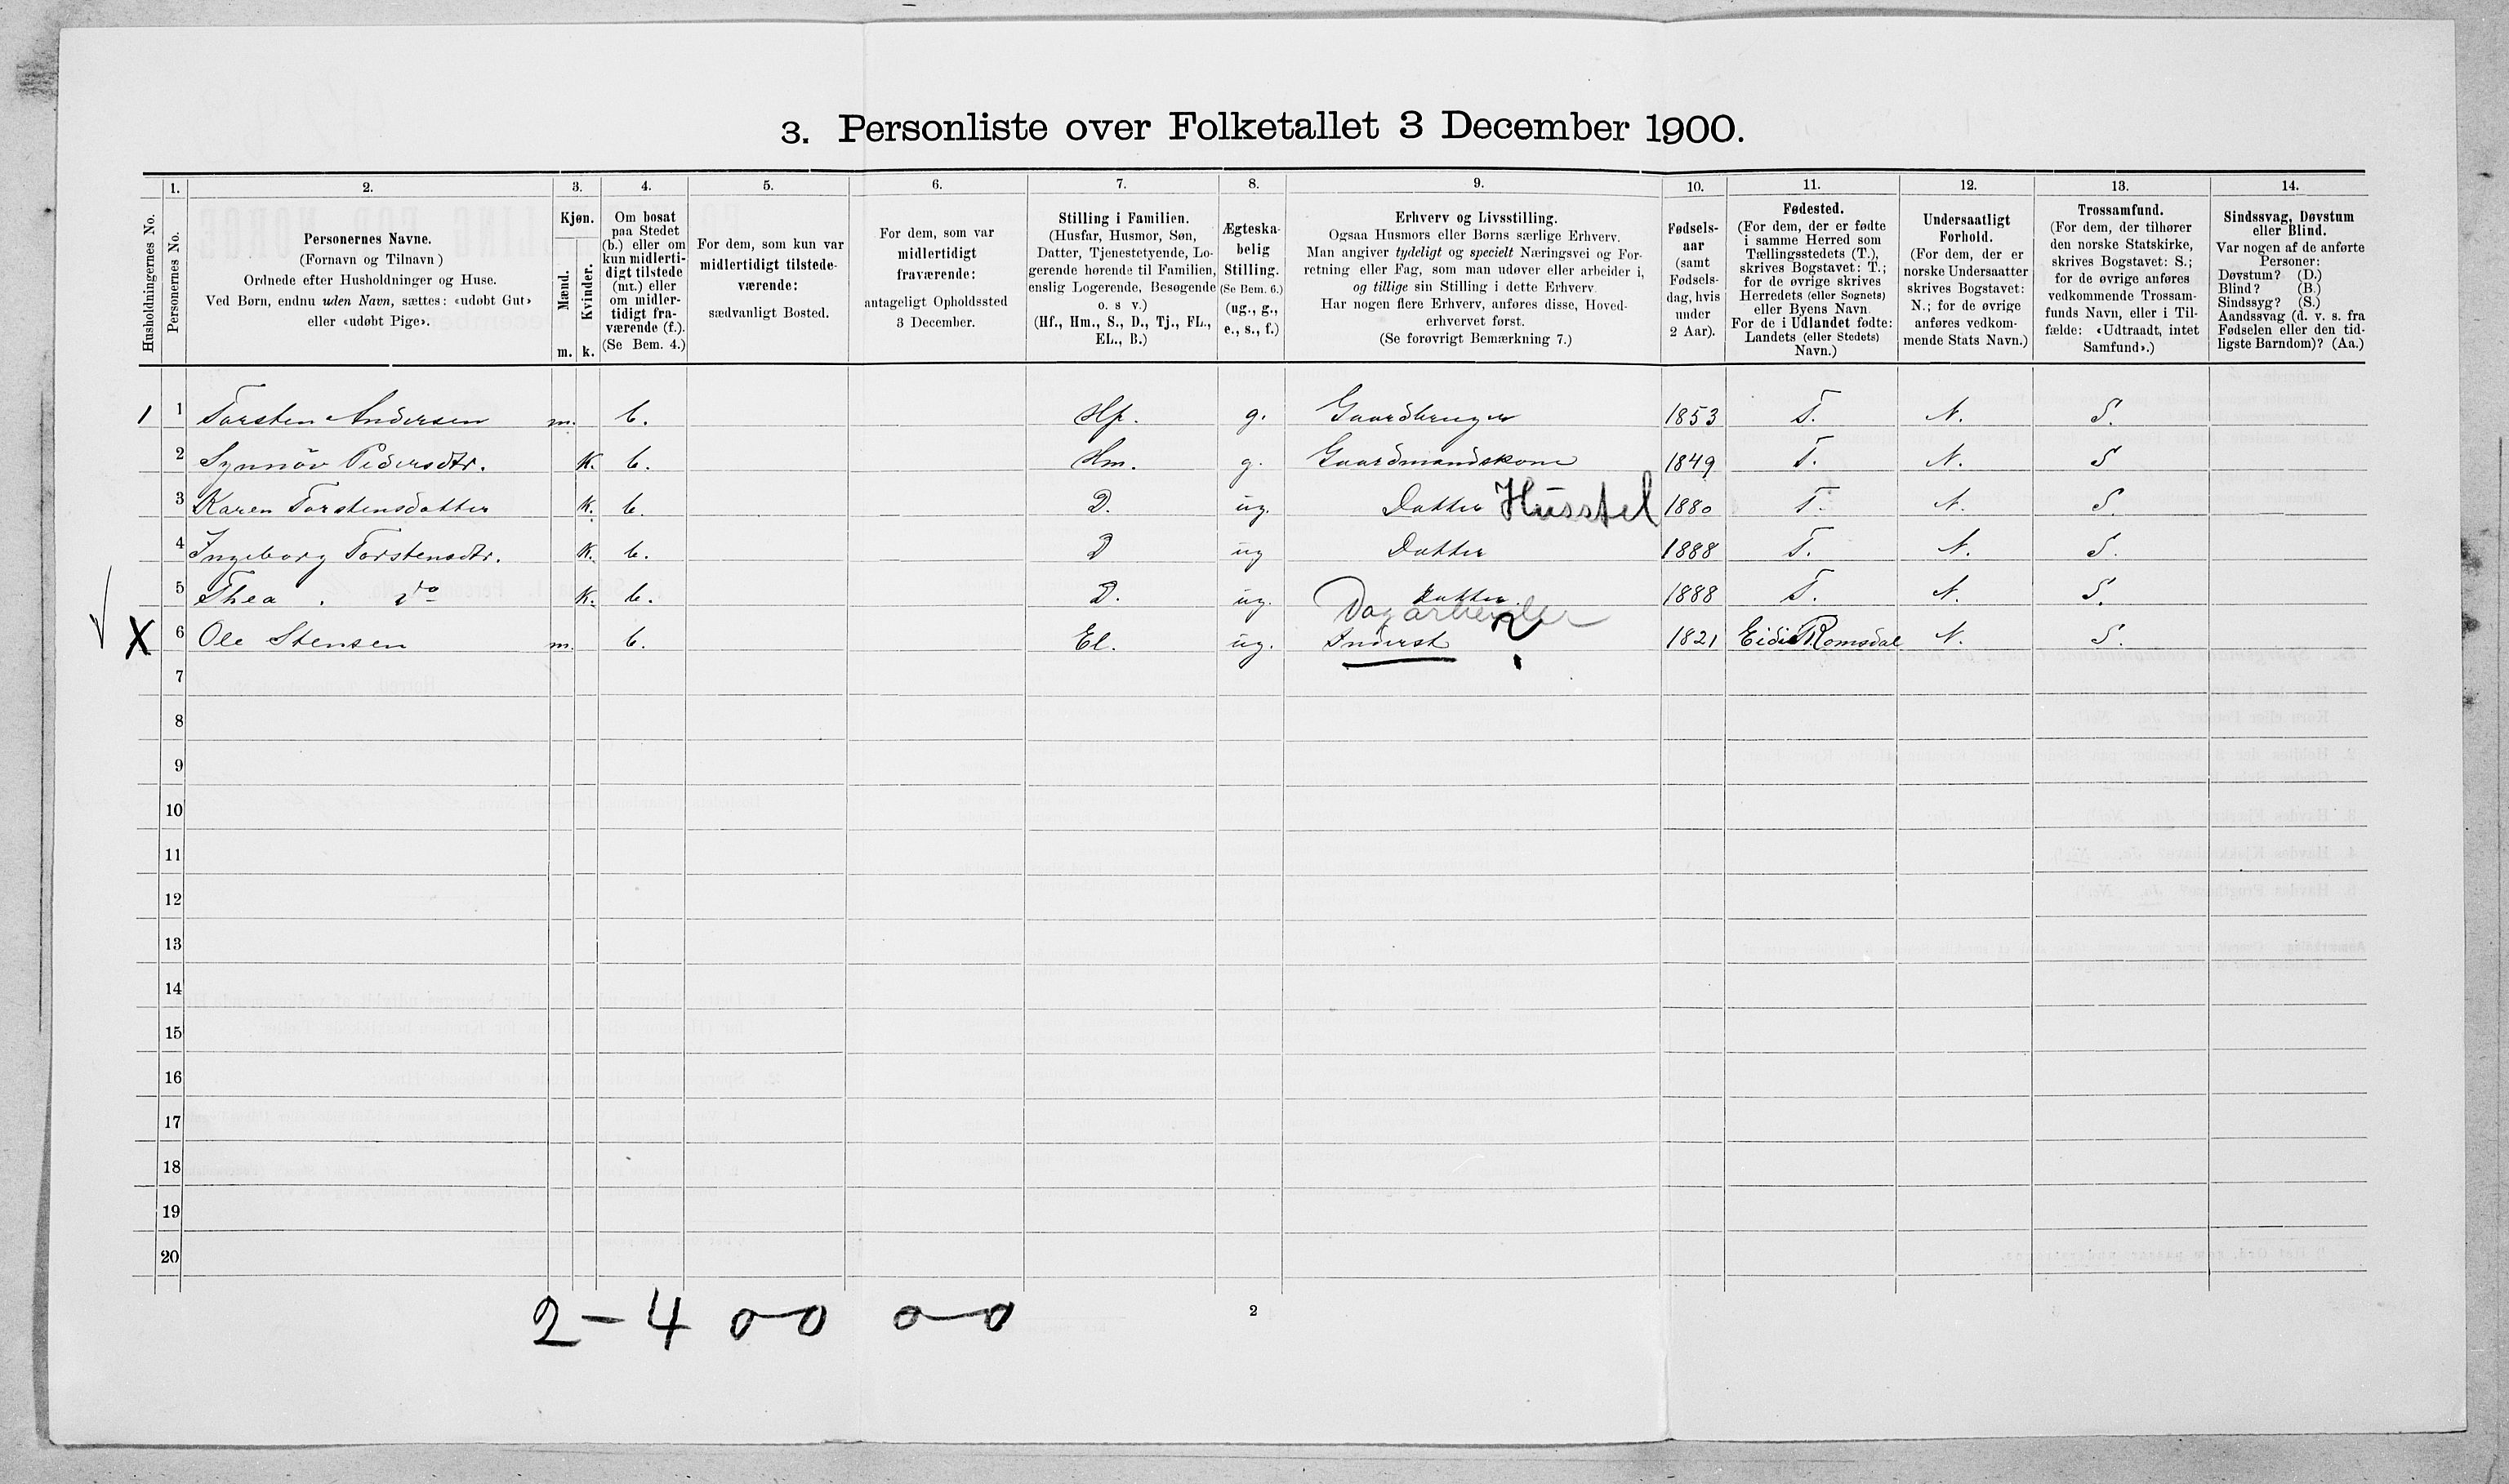 3. Personliste over Folketallet 3 December 1900.
1. 2. 3. 4. 5. 6. 7. 8. 9. 10. 11. 12. 13. 14.
Husholdningernes No.
Personernes No.
Personernes Navne.
(Fornavn og Tilnavn)
Ordnede efter Husholdninger og Huse.
Ved Børn, endnu uden Navn, sættes: «udøbt Gut»
eller «udøbt Pige».
Kjøn.
Mænd.
Kvinder.
m. k.
Om bosat
paa Stedet
(b.) eller om
kun midlerti-
digt tilstede
(mt.) eller
om midler-
tidigt fra-
værende (f.).
(Se Bem. 4.)
For dem, som kun var
midlertidigt tilstede-
værende:
sædvanligt Bosted.
For dem, som var
midlertidigt
fraværende:
antageligt Opholdssted
3 December.
Stilling i Familien.
(Husfar, Husmor, Søn,
Datter, Tjenestetyende, Lo-
gerende hørende til Familien,
enslig Logerende, Besøgende
o. s v.)
(Hf., Hm., S., D., Tj., FL.,
EL., B.)
Ægteska-
belig
Stilling.
(Se Bem. 6.)
(ug., g.,
e., s., f.)
Erhverv og Livsstilling.
Ogsaa Husmors eller Børns særlige Erhverv.
Man angiver tydeligt og specielt Næringsvei og For-
retning eller Fag, som man udøver eller arbeider i,
og tillige sin Stilling i dette Erhverv.
Har nogen flere Erhverv, anføres disse, Hoved-
erhvervet først.
(Se forøvrigt Bemærkning 7.)
Fødsels-
aar
(samt
Fødsels-
dag, hvis
under
2 Aar).
Fødested.
(For dem, der er fødte
i samme Herred som
Tællingsstedets (T.),
skrives Bogstavet: T.;
for de øvrige skrives
Herredets (eller Sognets)
eller Byens Navn.
For de i Udlandet fødte:
Landets (eller Stedets)
Navn.)
Undersaatligt
Forhold.
(For dem, der er
norske Undersaatter
skrives Bogstavet:
N.; for de øvrige
anføres vedkom-
mende Stats Navn.)
Trossamfund.
(For dem, der tilhører
den norske Statskirke,
skrives Bogstavet: S.;
for de øvrige anføres
vedkommende Trossam-
funds Navn, eller i Til-
fælde: «Udtraadt, intet
Samfund».)
Sindssvag, Døvstum
eller Blind.
Var nogen af de anførte
Personer:
Døvstum? (D.)
Blind? (B.)
Sindssyg? (S.)
Aandssvag (d. v. s. fra
Fødselen eller den tid-
ligste Barndom)? (Aa.)
1 1 Torsten Andersen m. b. Hf. g. Gaardbruger 1853 T. N. S.
2 Synnöv Pedersdtr. K. b. Hm. g. Gaardmandskone 1849 T. N. S
3 Karen Torstensdatter K. b. D. ug. Datter Husstel 1880 T. N. S.
4 Ingeborg Torstensdtr. K. b. D ug Datter 1888 T. N. S.
5 Thea . do K. b. D. ug. Datter. 1888 T. N. S.
Dagarbeider
X 6 Ole Stensen m. b. El. ug. Inderst ? 1821 Eidi Romsdal N. S.
7
8
9
10
11
12
13
14
15
16
17
18
19
20
2 - 4 0-0 0-0
2